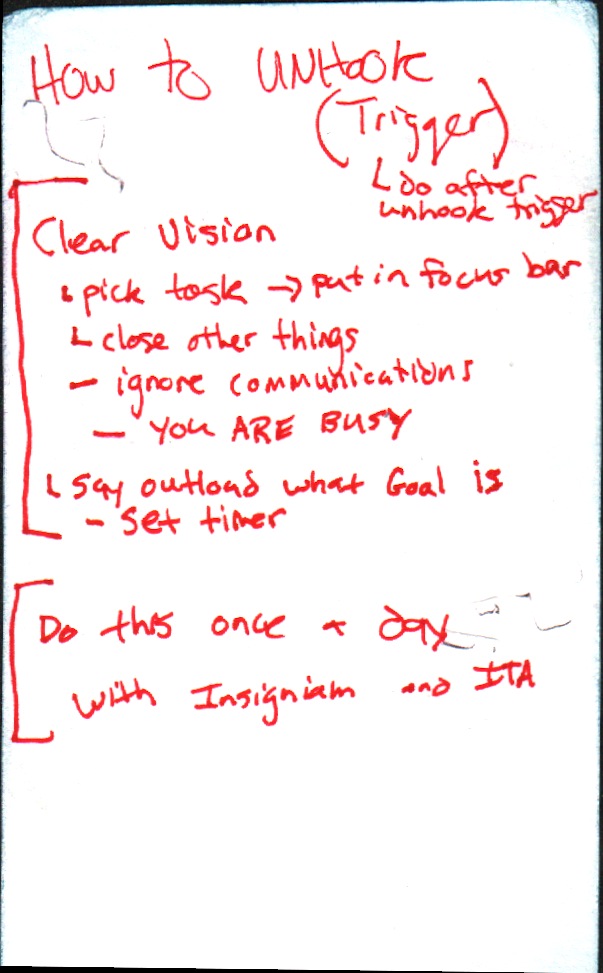 How to UNHook
(Trigger)
↳ Do after
unhook trigger
Clear Vision
↳ pick task → put in focus bar
↳ close other things
- ignore communications
- YOU ARE BUSY
↳ Say outload what Goal is
- Set timer
Do this once a day
with Insigniam and ITA